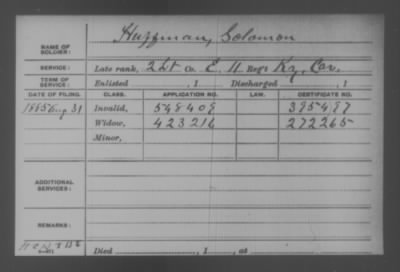 NAME OF SOLDIER: Huffman, Solomon
SERVICE: Late rank, 2 Lt Co. E, 11 Reg't Ky. Cav.
TERM OF SERVICE: Enlisted , 1 Discharged , 1
DATE OF FILING. CLASS. APPLICATION NO. LAW. CERTIFICATE NO.
1885 Aug 31 Invalid, 548409 395497
Widow, 423216 272265
Minor,
ADDITIONAL SERVICES:
REMARKS:
Died , 1 , at